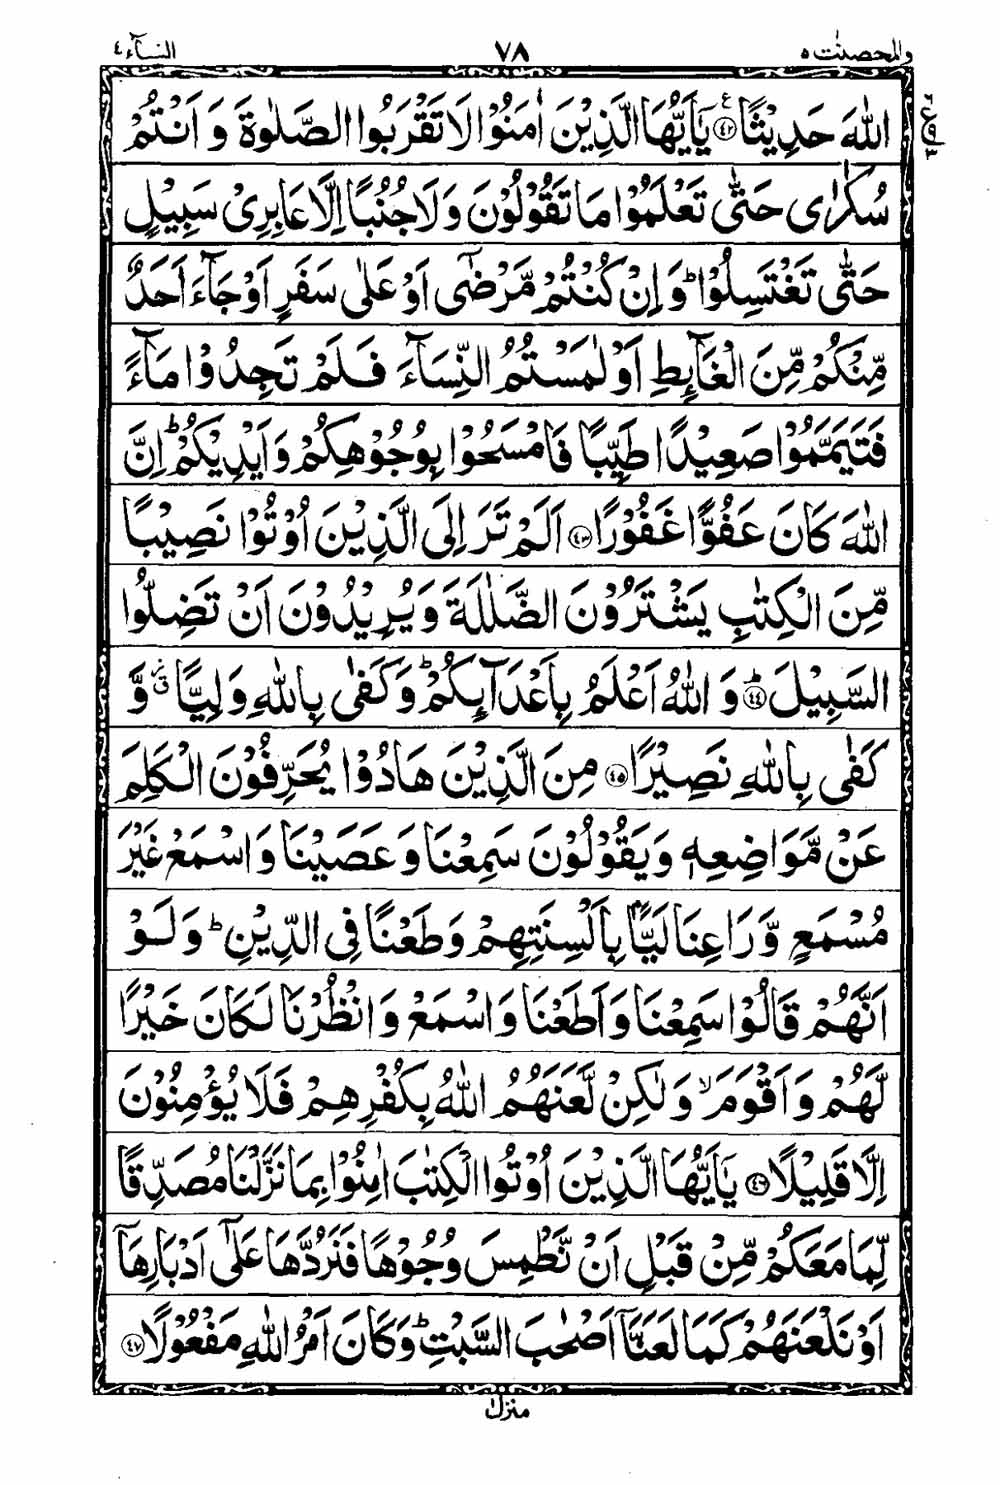 والمحصنت ٥ ٧٨ النسآء ٤
اللّٰهَ حَدِيْثًا ﴿٤٢﴾ ع يٰۤاَيُّهَا الَّذِيْنَ اٰمَنُوْا لَا تَقْرَبُوا الصَّلٰوةَ وَاَنْتُمْ
سُكٰرٰى حَتّٰى تَعْلَمُوْا مَا تَقُوْلُوْنَ وَلَا جُنُبًا اِلَّا عَابِرِىْ سَبِيْلٍ
حَتّٰى تَغْتَسِلُوْا ؕ وَاِنْ كُنْتُمْ مَّرْضٰۤى اَوْ عَلٰى سَفَرٍ اَوْ جَآءَ اَحَدٌ
مِّنْكُمْ مِّنَ الْغَآئِطِ اَوْ لٰمَسْتُمُ النِّسَآءَ فَلَمْ تَجِدُوْا مَآءً
فَتَيَمَّمُوْا صَعِيْدًا طَيِّبًا فَامْسَحُوْا بِوُجُوْهِكُمْ وَاَيْدِيْكُمْ ؕ اِنَّ
اللّٰهَ كَانَ عَفُوًّا غَفُوْرًا ﴿٤٣﴾ اَلَمْ تَرَ اِلَى الَّذِيْنَ اُوْتُوْا نَصِيْبًا
مِّنَ الْكِتٰبِ يَشْتَرُوْنَ الضَّلٰلَةَ وَيُرِيْدُوْنَ اَنْ تَضِلُّوا
السَّبِيْلَ ﴿٤٤﴾ ؕ وَاللّٰهُ اَعْلَمُ بِاَعْدَآئِكُمْ ؕ وَكَفٰى بِاللّٰهِ وَلِيًّا ۗ وَّ
كَفٰى بِاللّٰهِ نَصِيْرًا ﴿٤٥﴾ مِنَ الَّذِيْنَ هَادُوْا يُحَرِّفُوْنَ الْكَلِمَ
عَنْ مَّوَاضِعِهٖ وَيَقُوْلُوْنَ سَمِعْنَا وَعَصَيْنَا وَاسْمَعْ غَيْرَ
مُسْمَعٍ وَّرَاعِنَا لَيًّۢا بِاَلْسِنَتِهِمْ وَطَعْنًا فِى الدِّيْنِ ؕ وَلَوْ
اَنَّهُمْ قَالُوْا سَمِعْنَا وَاَطَعْنَا وَاسْمَعْ وَانْظُرْنَا لَكَانَ خَيْرًا
لَّهُمْ وَاَقْوَمَ ۙ وَلٰكِنْ لَّعَنَهُمُ اللّٰهُ بِكُفْرِهِمْ فَلَا يُؤْمِنُوْنَ
اِلَّا قَلِيْلًا ﴿٤٦﴾ يٰۤاَيُّهَا الَّذِيْنَ اُوْتُوا الْكِتٰبَ اٰمِنُوْا بِمَا نَزَّلْنَا مُصَدِّقًا
لِّمَا مَعَكُمْ مِّنْ قَبْلِ اَنْ نَّطْمِسَ وُجُوْهًا فَنَرُدَّهَا عَلٰۤى اَدْبَارِهَاۤ
اَوْ نَلْعَنَهُمْ كَمَا لَعَنَّاۤ اَصْحٰبَ السَّبْتِ ؕ وَكَانَ اَمْرُ اللّٰهِ مَفْعُوْلًا ﴿٤٧﴾
منزل